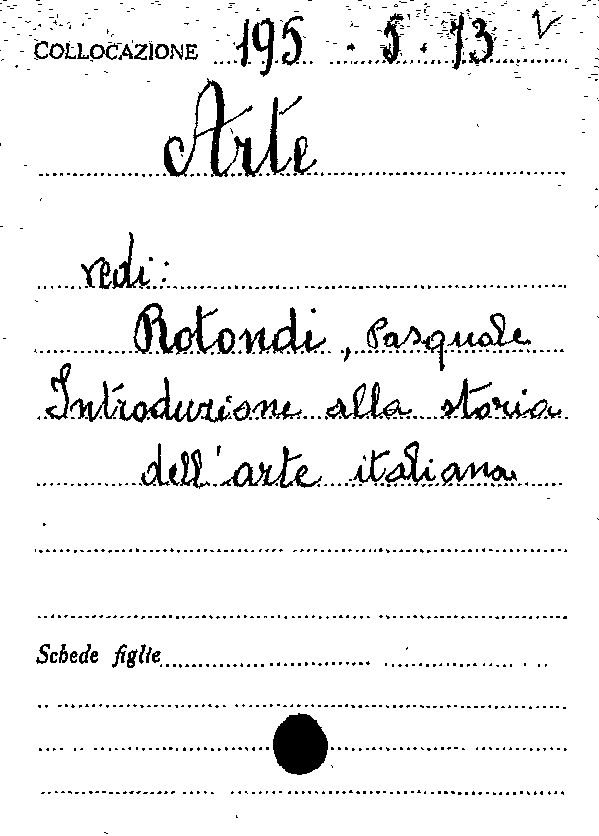 COLLOCAZIONE 195 . 5 . 13
Arte
vedi:
Rotondi, Pasquale
Introduzione alla storia
dell'arte italiana
Schede figlie